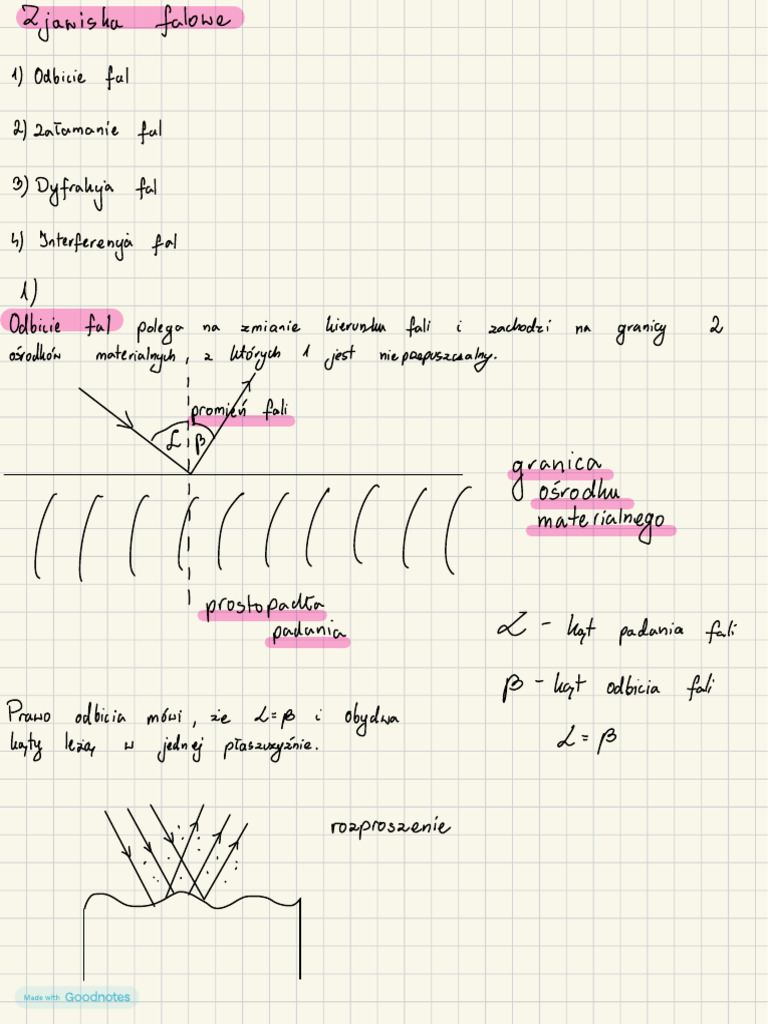 Zjawiska falowe
1) Odbicie fal
2) Załamanie fal
3) Dyfrakcja fal
4) Interferencja fal
1)
Odbicie fal polega na zmianie kierunku fali i zachodzi na granicy 2
ośrodków materialnych, z których 1 jest nieprzepuszczalny.
promień fali
α β
granica
ośrodku
materialnego
prostopadła
padania
α - kąt padania fali
β - kąt odbicia fali
α = β
Prawo odbicia mówi, że α = β i obydwa
kąty leżą w jednej płaszczyźnie.
rozproszenie
Made with Goodnotes